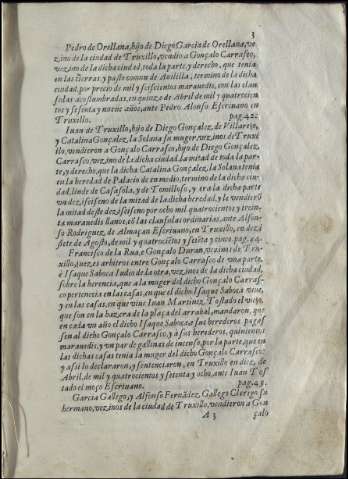 3
Pedro de Orellana, hijo de Diego Garcia de Orellana, ve-
zino de la ciudad de Truxillo, vendio a Gonçalo Carrasco,
vezino de la dicha ciudad, toda la parte, y derecho, que tenia
en las tierras, y pasto comun de Aulilla, termino de la dicha
ciudad, por precio de mil y seiscientos marauedis, con las clau
sulas acostumbradas, en quinze de Abril de mil y quatrocien
tos y sesenta y nueue años, ante Pedro Alonso Escriuano en
Truxillo. pag. 42.
Iuan de Truxillo, hijo de Diego Gonçalez, de Villarejo,
y Catalina Gonçalez, la Solana su muger, vezinos de Truxi
llo, vendieron a Gonçalo Carrasco, hijo de Diego Gonçalez
Carrasco, vezino de la dicha ciudad, la mitad de toda la par-
te, y derecho, que la dicha Catalina Gonçalez, la Solana, tenia
en la heredad de Palacio de en medio, termino de la dicha ciu
dad, linde de Casasola, y de Tomilloso, y era la dicha parte
vn dezisetsmo de la mitad de la dicha heredad, y le vendierõ
la mitad deste por ocho mil quatrocientos y trein-
ta marauedis llanos, cõ las clausulas ordinarias, ante Alfon-
so Rodriguez, de Almaçan Escriuano, en Truxillo, en diez y
siete de Agosto, de mil y quatrociẽtos y setẽta y cinco. pag. 44.
Francisco de la Rua, e Gonçalo Duran, vezinos de Tru-
xillo, juezes arbitros entre Gonçalo Carrasco de vna parte,
è Isaque Saboca Iudio de la otra, vezinos de la dicha ciudad,
sobre la herencia, que a la muger del dicho Gonçalo Carras-
co pertenecia en las casas, en que el dicho Isaque Saboca viuia,
y en las casas, en que viuia Iuan Martinez, Tostado el viejo,
que son en la hazera de la plaça del arrabal, mandaron, que
en cada vn año el dicho Isaque Saboca, e sus herederos pagas
sen al dicho Gonçalo Carrasco, y a sus herederos, quinientos
marauedis, y vn par de gallinas de incenso, por la parte, que en
las dichas casas tenia la muger del dicho Gonçalo Carrasco:
y assi lo declararon, y sentenciaron, en Truxillo en diez, de
Abril, de mil y quatrocientos y setenta y ocho, ante Iuan Tos
tado el moço Escriuano. pag. 49.
Garcia Gallego, y Alfonso Fernãdez, Gallego Clerigo su
hermano, vezinos de la ciudad de Truxillo, vendieron a Gon
A 3 çalo